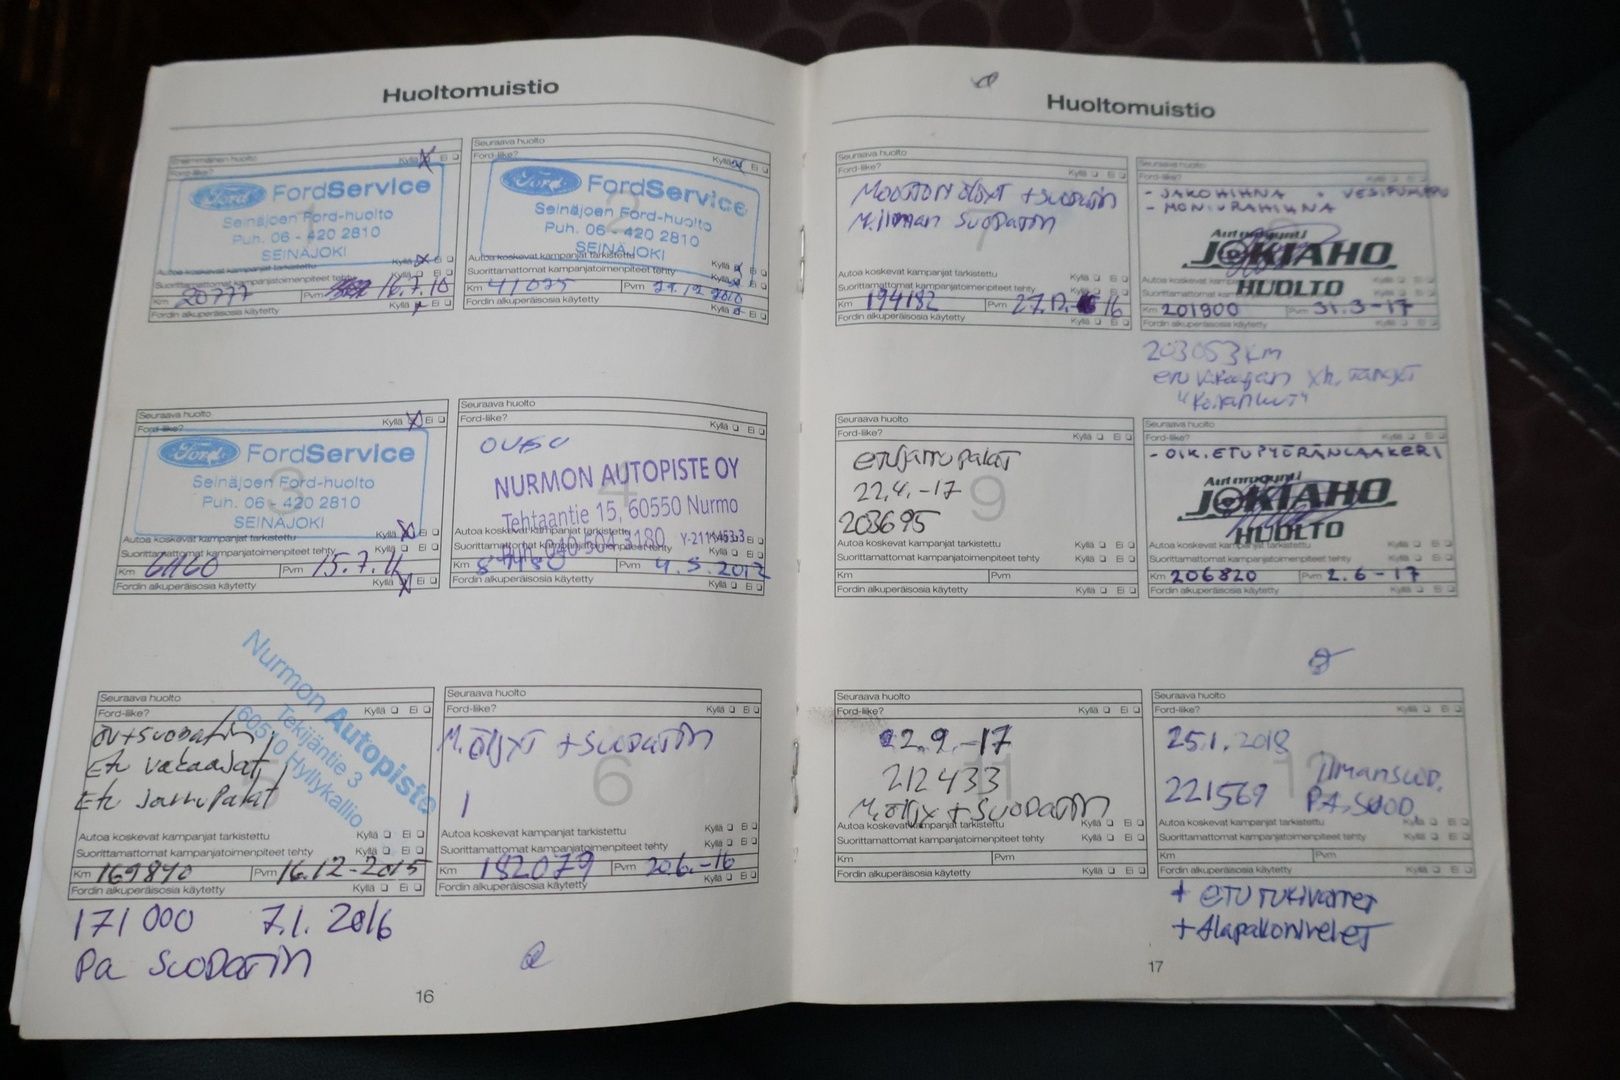 Huoltomuistio
Ensimmäinen huolto
Ford-liike?
Kyllä Ei
Ford FordService
Seinäjoen Ford-huolto
Puh. 06 - 420 2810
SEINÄJOKI
Autoa koskevat kampanjat tarkistettu
Kyllä Ei
Suorittamattomat kampanjatoimenpiteet tehty
Kyllä Ei
Km 20777 Pvm 16.7.10
Fordin alkuperäisosia käytetty
Kyllä Ei
Seuraava huolto
Ford-like?
Kyllä Ei
2
Ford FordService
Seinäjoen Ford-huolto
Puh. 06 - 420 2810
SEINÄJOKI
Autoa koskevat kampanjat tarkistettu
Suorittamattomat kampanjatoimenpiteet tehty
Km 41075 Pvm
Fordin alkuperäisosia käytetty
Kyllä Ei
Seuraava huolto
Ford-like?
Kyllä Ei
3
Ford FordService
Seinäjoen Ford-huolto
Puh. 06 - 420 2810
SEINÄJOKI
Autoa koskevat kampanjat tarkistettu
Kyllä Ei
Suorittamattomat kampanjatoimenpiteet tehty
Kyllä Ei
Km Pvm 15.7.11
Fordin alkuperäisosia käytetty
Kyllä Ei
Seuraava huolto
Ford-like?
Kyllä Ei
4
NURMON AUTOPISTE OY
Tehtaantie 15, 60550 Nurmo
Puh. 040 504 3180
Autoa koskevat kampanjat tarkistettu
Suorittamattomat kampanjatoimenpiteet tehty
Km Pvm 4.5.2012
Fordin alkuperäisosia käytetty
Kyllä Ei
Nurmon Autopiste
Tekijäntie 3
60510 Hyllykallio
Seuraava huolto
Ford-like?
Kyllä Ei
5
öv+suodatin
Etu vakaajat
Etu jarrupalat
Autoa koskevat kampanjat tarkistettu
Kyllä Ei
Suorittamattomat kampanjatoimenpiteet tehty
Kyllä Ei
Km 169840 Pvm 16.12-2015
Fordin alkuperäisosia käytetty
Kyllä Ei
171 000 7.1. 2016
Pa suodatin
Seuraava huolto
Ford-like?
Kyllä Ei
6
M.öljyt + suodatin
Autoa koskevat kampanjat tarkistettu
Kyllä Ei
Suorittamattomat kampanjatoimenpiteet tehty
Kyllä Ei
Km 182079 Pvm 20.6.-16
Fordin alkuperäisosia käytetty
Kyllä Ei
16
Huoltomuistio
Seuraava huolto
Ford-like?
Kyllä Ei
Moottoriöljyt + suodatin
M.ilman suodatin
Autoa koskevat kampanjat tarkistettu
Kyllä Ei
Suorittamattomat kampanjatoimenpiteet tehty
Kyllä Ei
Km 194182 Pvm 27.12.-16
Fordin alkuperäisosia käytetty
Kyllä Ei
Seuraava huolto
- JAKOHIHNA + VESIPUMPPU
- MONIURAHIHNA
Automyynti
JOKIAHO
HUOLTO
Autoa koskevat kampanjat tarkistettu
Suorittamattomat
Km 201900 Pvm 31.3-17
Fordin alkuperäisosia käytetty
Kyllä Ei
203053 km
etu vakaajan
Seuraava huolto
Ford-like?
Kyllä Ei
9
etujarrupalat
22.4.-17
203695
Autoa koskevat kampanjat tarkistettu
Kyllä Ei
Suorittamattomat kampanjatoimenpiteet tehty
Kyllä Ei
Km Pvm
Fordin alkuperäisosia käytetty
Kyllä Ei
Seuraava huolto
Ford-like?
Kyllä Ei
- OIK. ETUPYÖRÄNLAAKERI
Automyynti
JOKIAHO
HUOLTO
Autoa koskevat kampanjat tarkistettu
Suorittamattomat kampanjatoimenpiteet tehty
Kyllä Ei
Km 206820 Pvm 2.6-17
Fordin alkuperäisosia käytetty
Kyllä Ei
Seuraava huolto
Ford-like?
Kyllä Ei
11
22.9.-17
212433
M.öljy + suodatin
Autoa koskevat kampanjat tarkistettu
Kyllä Ei
Suorittamattomat kampanjatoimenpiteet tehty
Kyllä Ei
Km Pvm
Fordin alkuperäisosia käytetty
Kyllä Ei
Seuraava huolto
Ford-like?
Kyllä Ei
12
25.1.2018
221569
ilmansuod.
PA.SUOD.
Autoa koskevat kampanjat tarkistettu
Kyllä Ei
Suorittamattomat kampanjatoimenpiteet tehty
Kyllä Ei
Km Pvm
Fordin alkuperäisosia käytetty
Kyllä Ei
+ etutukivarret
+ Alapallonivelet
17